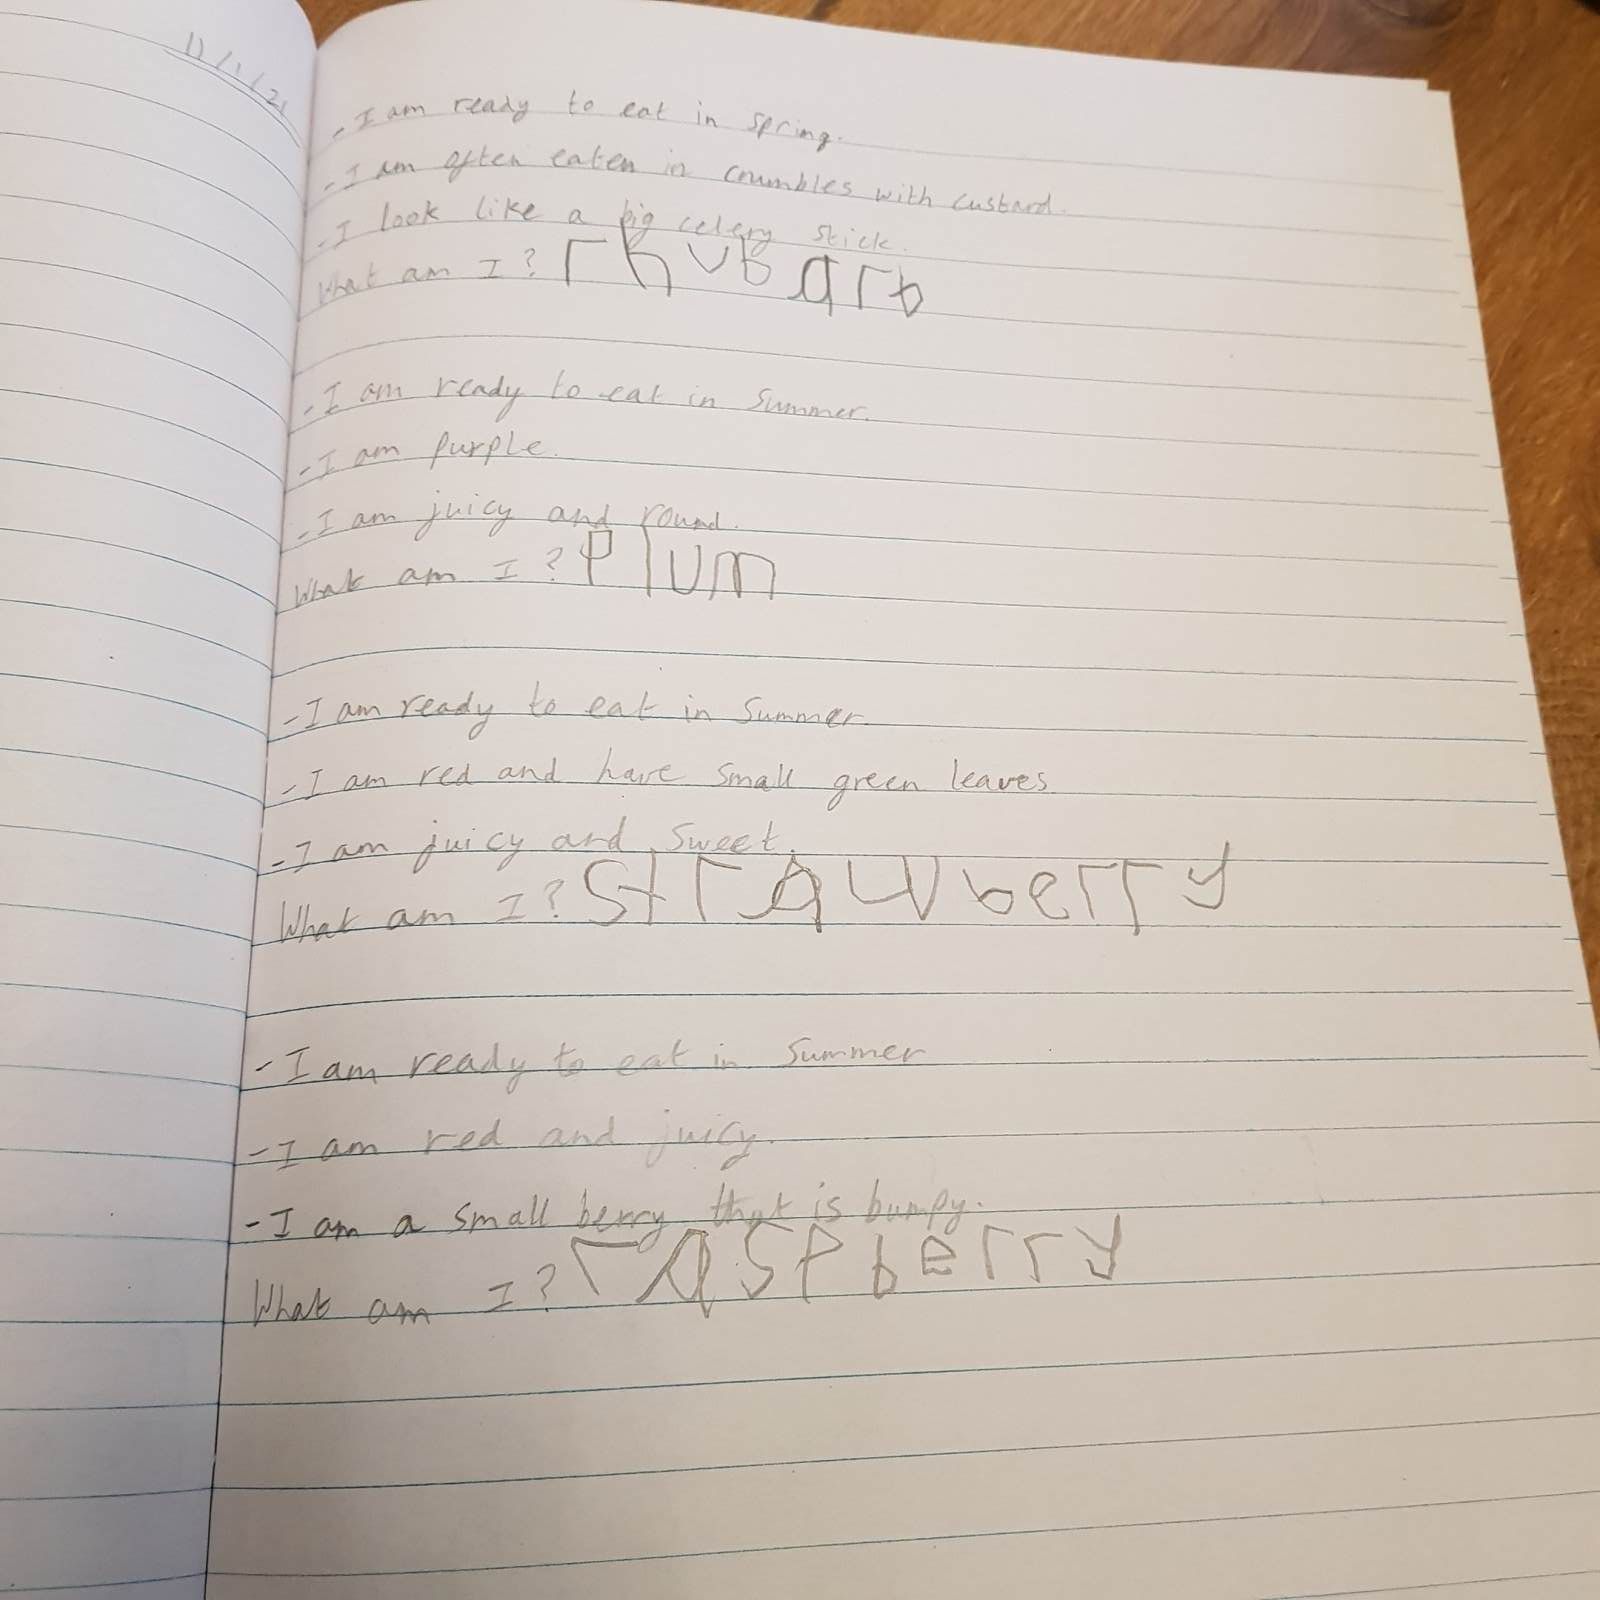 11/1/21
- I am ready to eat in spring.
- I am often eaten in crumbles with custard.
- I look like a big celery stick.
What am I? rhubarb
- I am ready to eat in Summer.
- I am purple.
- I am juicy and round.
What am I? Plum
- I am ready to eat in Summer.
- I am red and have small green leaves
- I am juicy and sweet.
What am I? strawberry
- I am ready to eat in Summer
- I am red and juicy.
- I am a small berry that is bumpy.
What am I? raspberry